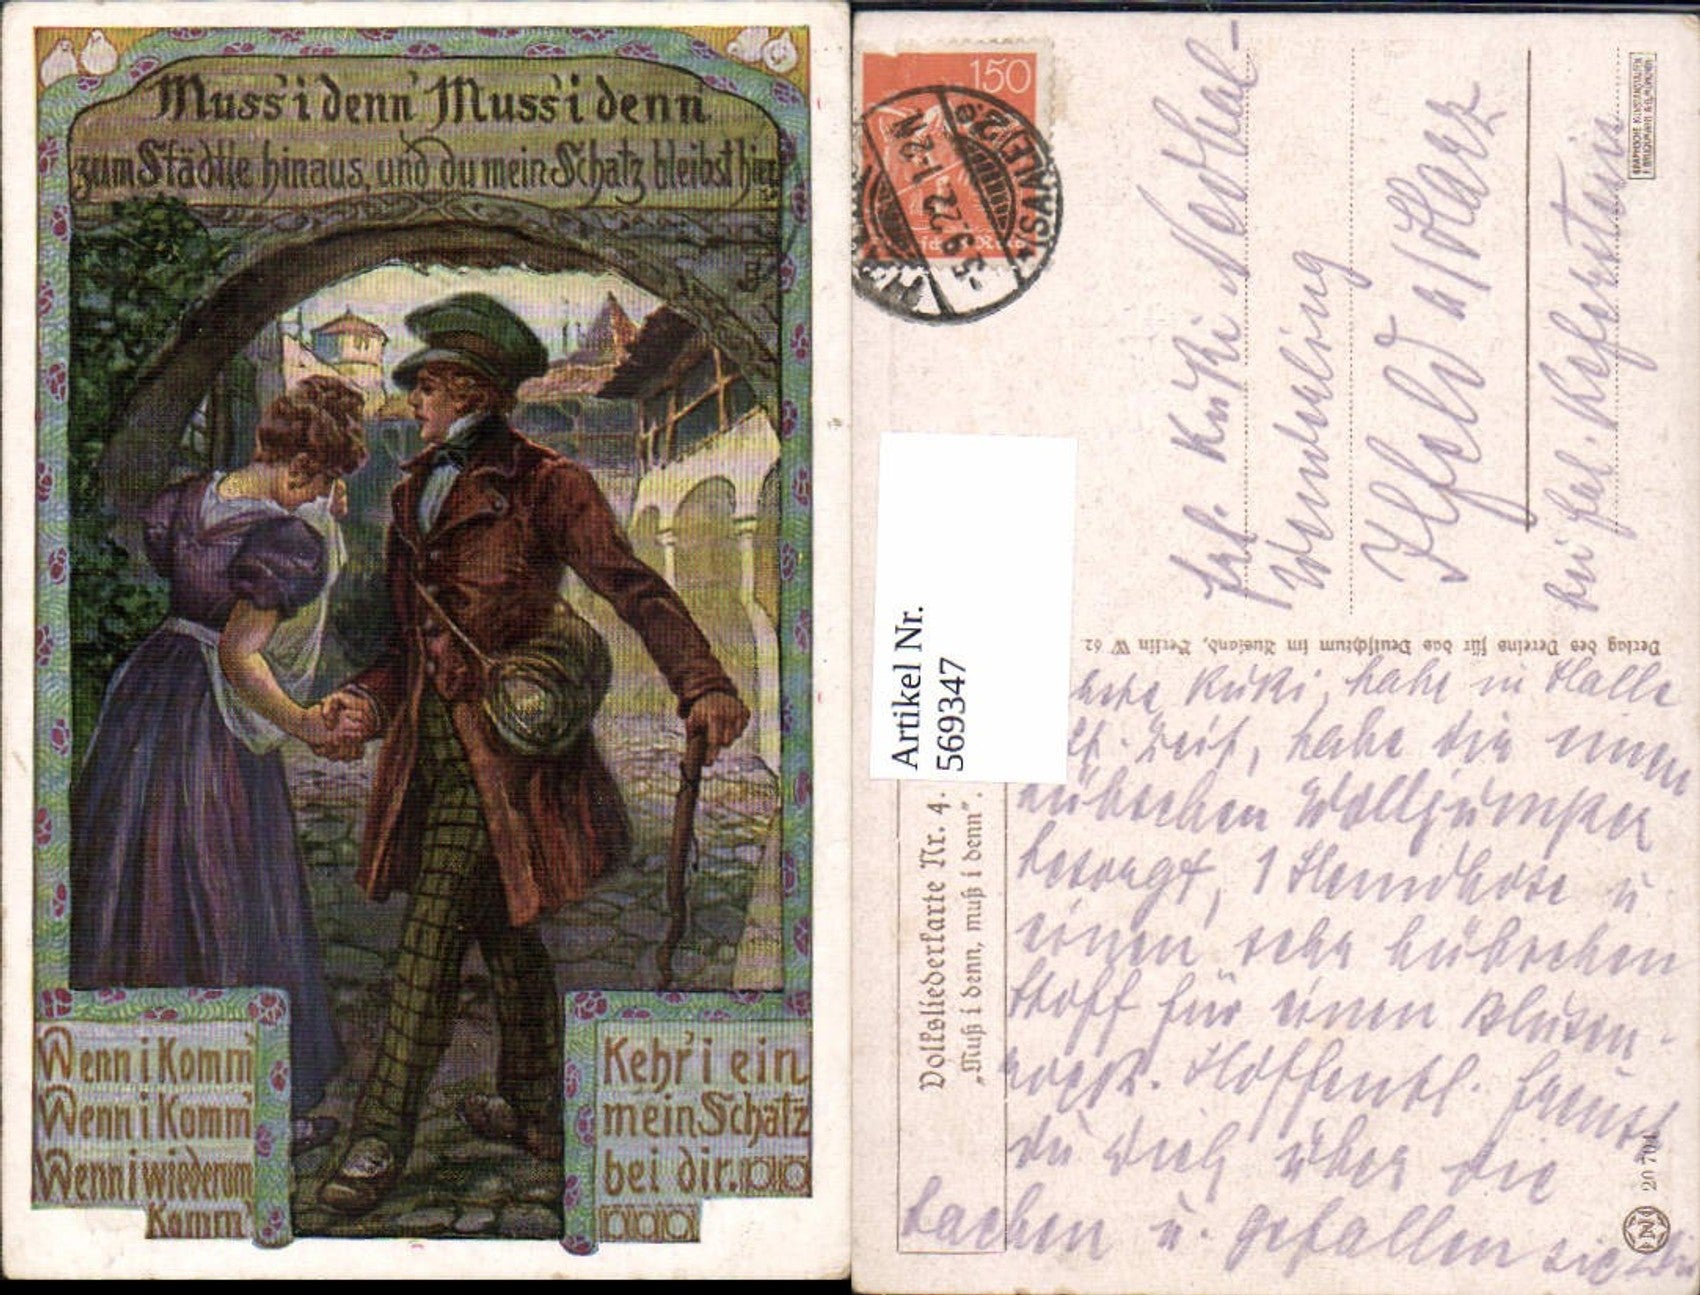 Muss'i denn' Muss'i denn'
zum Städtle hinaus, und du mein Schatz bleibst hier.
Wenn i Komm'
Wenn i Komm'
Wenn i wiederum
Komm'
Kehr' i ein
mein Schatz
bei dir.
150
(SAALE) 2
-5.9.22. 1-2 N
Frl. Kuki
Ilfeld a/Harz
bei Fal. Keferstein
GRAPHISCHE KUNSTANSTALTEN
F. BRUCKMANN A.G. MÜNCHEN
Verlag des Vereins für das Deutschtum im Ausland, Berlin W 62
Artikel Nr.
569347
Volksliederkarte Nr. 4.
„Muß i denn, muß i denn".
Kuki, habe in Halle
Zeit, habe dir einen
hübschen Wolljumper
besorgt, 1 Hemdhose u
einen sehr hübschen
Stoff für einen Blusen-
rock. Hoffentl. freust
du dich über die
Sachen u. gefallen sie Dir
20 704